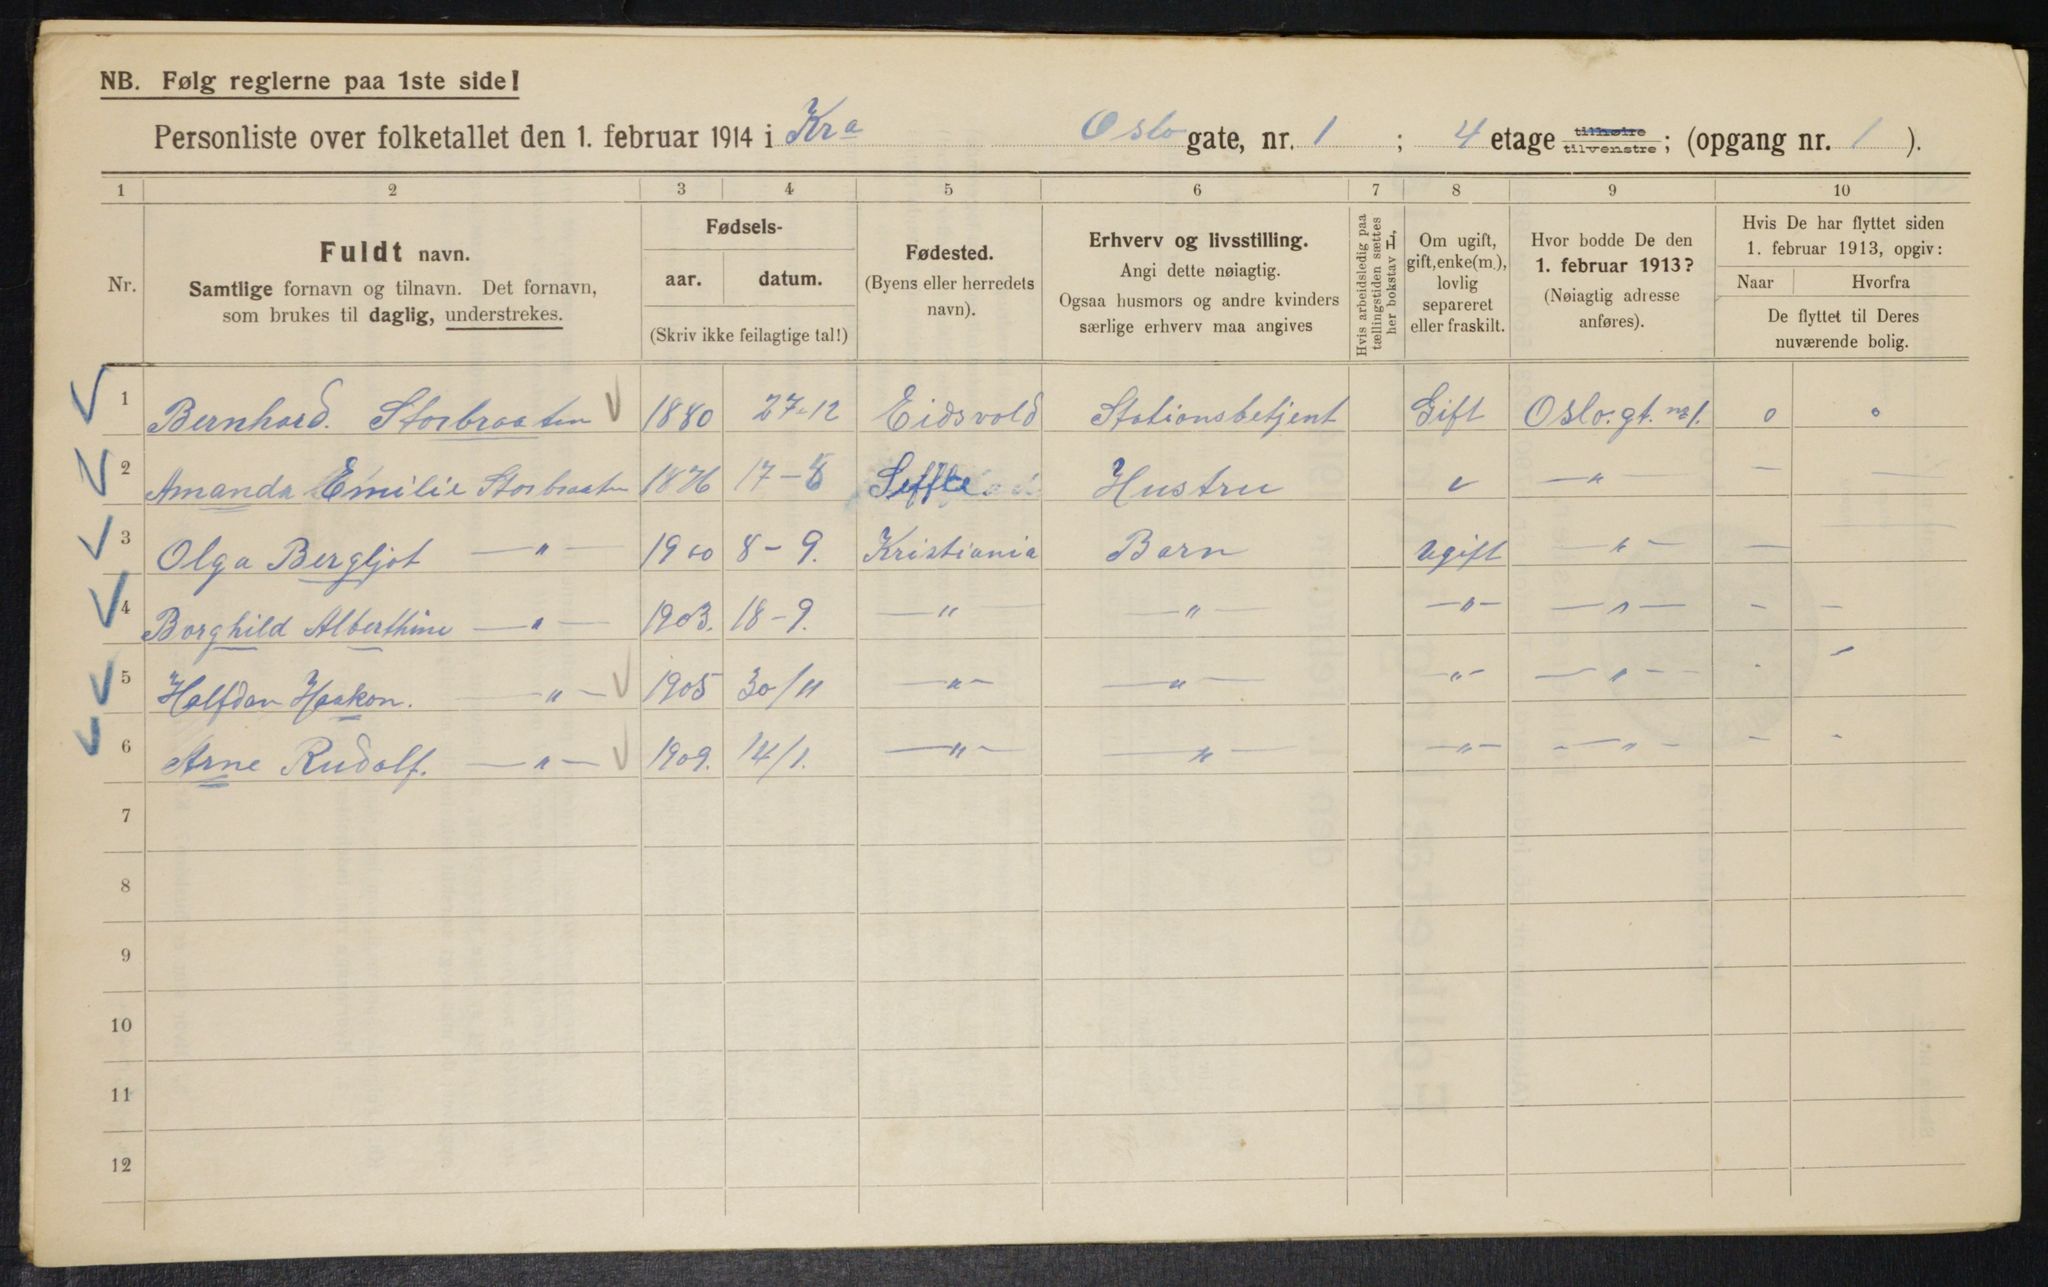 NB. Følg reglerne paa 1ste side!
Personliste over folketallet den 1. februar 1914 i Kra Oslo gate, nr. 1 ; 4 etage tilhøire tilvenstre; (opgang nr. 1 ).
1 2 3 4 5 6 7 8 9 10
Nr.
Fuldt navn.
Samtlige fornavn og tilnavn. Det fornavn,
som brukes til daglig, understrekes.
Fødsels-
aar. datum.
(Skriv ikke feilagtige tal!)
Fødested.
(Byens eller herredets
navn).
Erhverv og livsstilling.
Angi dette nøiagtig.
Ogsaa husmors og andre kvinders
særlige erhverv maa angives
Hvis arbeidsledig paa
tællingstiden sættes
her bokstav L,
Om ugift,
gift, enke(m.),
lovlig
separeret
eller fraskilt.
Hvor bodde De den
1. februar 1913?
(Nøiagtig adresse
anføres).
Hvis De har flyttet siden
1. februar 1913, opgiv:
Naar Hvorfra
De flyttet til Deres
nuværende bolig.
1 Bernhard. Storbraaten 1880 27-12 Eidsvold Stationsbetjent Gift Oslo.gt. nr 1. o o
2 Amanda Emilie Storbraaten 1876 17-8 Seffle Hustru " — " — — —
3 Olga Bergljot — " — 1900 8-9. Kristiania Barn Ugift — " — — —
4 Borghild Alberthine — " — 1903. 18-9. — " — — " — — " — — " — — —
5 Halfdan Haakon. — " — 1905 30/11 — " — — " — — " — — " — - -
6 Arne Rudolf. — " — 1909. 14/1. — " — — " — — " — — " — - -
7
8
9
10
11
12